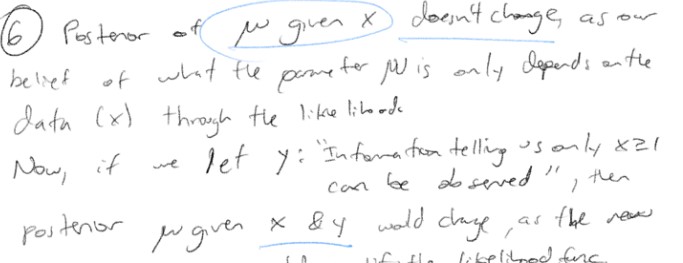 ⑥ Posterior of μ given x doesn't change, as our
belief of what the parameter μ is only depends on the
data (x) through the likelihood.
Now, if we let y: "Information telling us only x≥1
can be observed", then
posterior μ given x & y would change, as the new
likelihood func